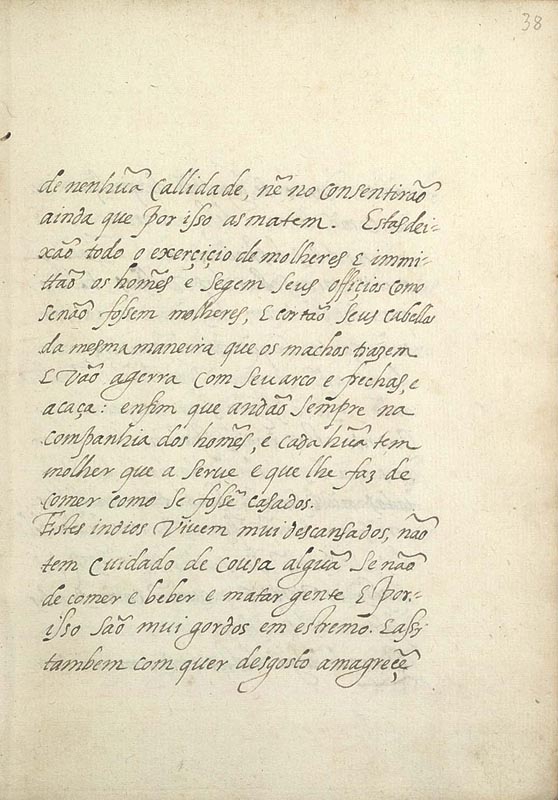 38
de nenhũa callidade, nẽ no consentirão
ainda que por isso as matem. Estas dei=
xão todo o exerçiçio de molheres E immi-
tão os homẽs e segem seus offiçios como
senão fossem molheres, E cortão seus cabellos
da mesma maneira que os machos trazem
E vão agerra com seu arco e frechas, e
acaça: enfim que andão sempre na
companhia dos homẽs, e cada hũa tem
molher que a serve e que lhe faz de
comer como se fossẽ casados.
Estes indios vivem mui descansados, não
tem cuidado de cousa algũa senão
de comer e beber e matar gente E por=
isso são mui gordos em estremo. E assy
tambem com quer desgosto amagreçẽ